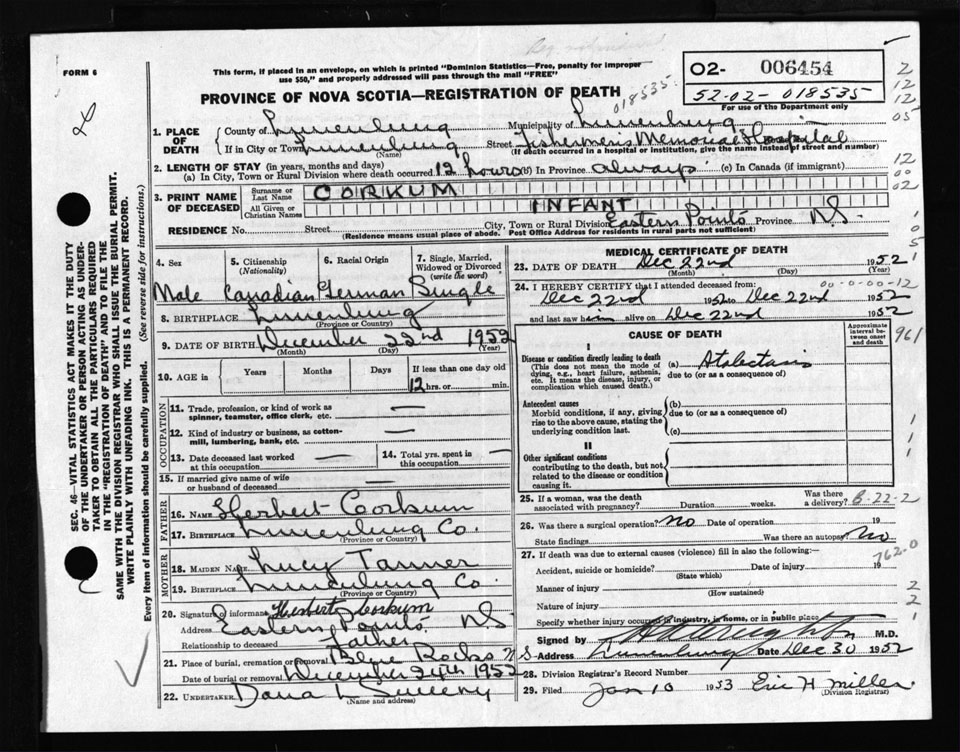 FORM 6
This form, if placed in an envelope, on which is printed "Dominion Statistics—Free, penalty for improper
use $50," and properly addressed will pass through the mail "FREE"
02- 006454
52-02-018535
For use of the Department only
PROVINCE OF NOVA SCOTIA—REGISTRATION OF DEATH
018535
1. PLACE OF DEATH
County of Lunenburg Municipality of Lunenburg
If in City or Town Lunenburg (Name) Street Fishermen's Memorial Hospital
(If death occurred in a hospital or institution, give the name instead of street and number)
2. LENGTH OF STAY (in years, months and days)
(a) In City, Town or Rural Division where death occurred 12 hours (b) In Province always (c) In Canada (if immigrant)
3. PRINT NAME OF DECEASED
Surname or Last Name CORKUM
All Given or Christian Names INFANT
RESIDENCE No. Street City, Town or Rural Division Eastern Points Province N.S.
(Residence means usual place of abode. Post Office Address for residents in rural parts not sufficient)
4. Sex 5. Citizenship (Nationality) 6. Racial Origin 7. Single, Married, Widowed or Divorced (write the word)
Male Canadian German Single
8. BIRTHPLACE Lunenburg
(Province or Country)
9. DATE OF BIRTH December 22nd 1952
(Month) (Day) (Year)
10. AGE in Years Months Days If less than one day old
12 hrs. or min.
OCCUPATION
11. Trade, profession, or kind of work as spinner, teamster, office clerk, etc. —
12. Kind of industry or business, as cotton-mill, lumbering, bank, etc. —
13. Date deceased last worked at this occupation — 14. Total yrs. spent in this occupation —
15. If married give name of wife or husband of deceased
FATHER
16. NAME Herbert Corkum
17. BIRTHPLACE Lunenburg Co.
(Province or Country)
MOTHER
18. MAIDEN NAME Lucy Tanner
19. BIRTHPLACE Lunenburg Co.
(Province or Country)
20. Signature of informant Herbert Corkum
Address Eastern Points NS
Relationship to deceased Father
21. Place of burial, cremation or removal Blue Rocks N S
Date of burial or removal December 24th 1952
22. UNDERTAKER Dana L Sweeny
(Name and address)
MEDICAL CERTIFICATE OF DEATH
23. DATE OF DEATH Dec 22nd 1952
(Month) (Day) (Year)
24. I HEREBY CERTIFY that I attended deceased from: 00-0-00-12
Dec 22nd 1952 to Dec 22nd 1952
and last saw him alive on Dec 22nd 1952
CAUSE OF DEATH
Approximate interval between onset and death
I
Disease or condition directly leading to death (a) Atalectasis
(This does not mean the mode of dying, e.g., heart failure, asthenia, etc. It means the disease, injury, or complication which caused death.)
due to (or as a consequence of)
Antecedent causes (b)
Morbid conditions, if any, giving rise to the above cause, stating the underlying condition last.
due to (or as a consequence of)
(c)
II
Other significant conditions
contributing to the death, but not related to the disease or condition causing it.
25. If a woman, was the death associated with pregnancy? Duration weeks. Was there a delivery? B-22-2
26. Was there surgical operation? No Date of operation 19
State findings Was there an autopsy? No
27. If death was due to external causes (violence) fill in also the following:—
762.0
Accident, suicide or homicide? Date of injury 19
(State which)
Manner of injury
(How sustained)
Nature of injury
Specify whether injury occurred in industry, in home, or in public place
Signed by M.D.
Address Lunenburg Date Dec 30 1952
28. Division Registrar's Record Number
29. Filed Jan 10 1953 Eric H Miller
(Division Registrar)
SEC. 46—VITAL STATISTICS ACT MAKES IT THE DUTY
OF THE UNDERTAKER OR PERSON ACTING AS UNDER-
TAKER TO OBTAIN ALL THE PARTICULARS REQUIRED
IN THE "REGISTRATION OF DEATH" AND TO FILE THE
SAME WITH THE DIVISION REGISTRAR WHO SHALL ISSUE THE BURIAL PERMIT.
WRITE PLAINLY WITH UNFADING INK. THIS IS A PERMANENT RECORD.
Every item of information should be carefully supplied. (See reverse side for instructions.)
2
12
12
05
12
00
02
1
05
1
961
1
1
1
2
2
1